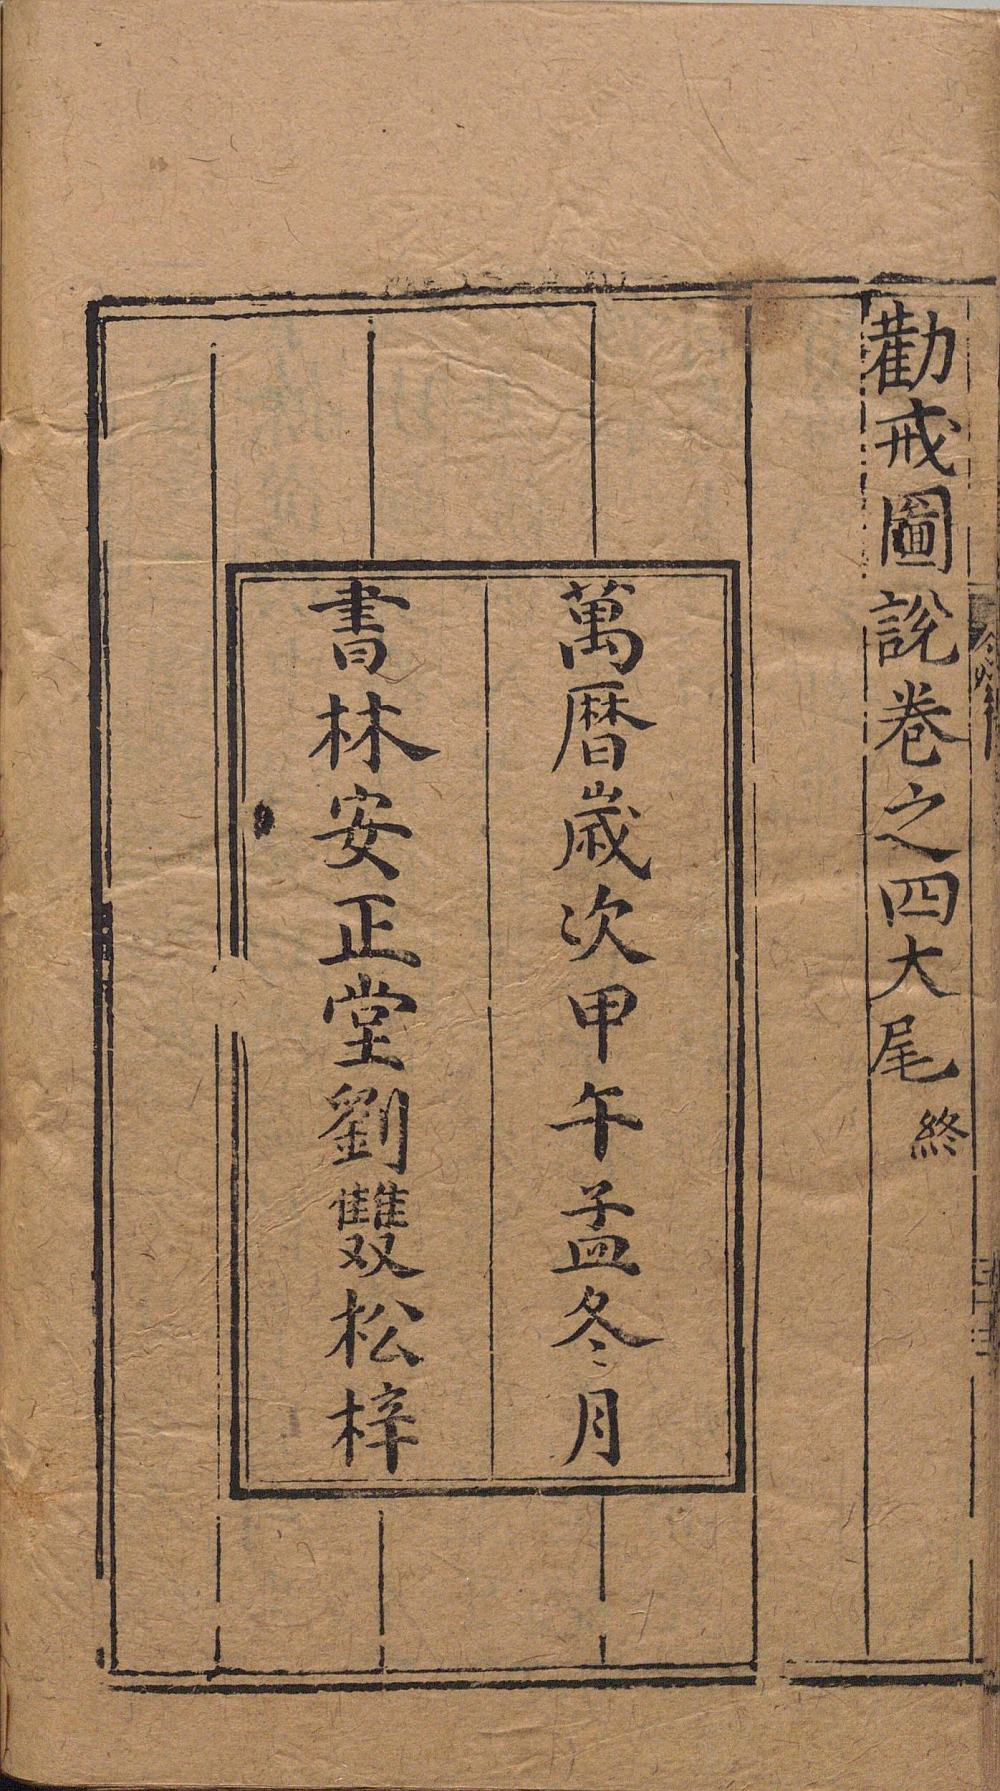 勸戒圖說卷之四大尾 終
萬曆歲次甲午孟冬月
書林安正堂劉雙松梓